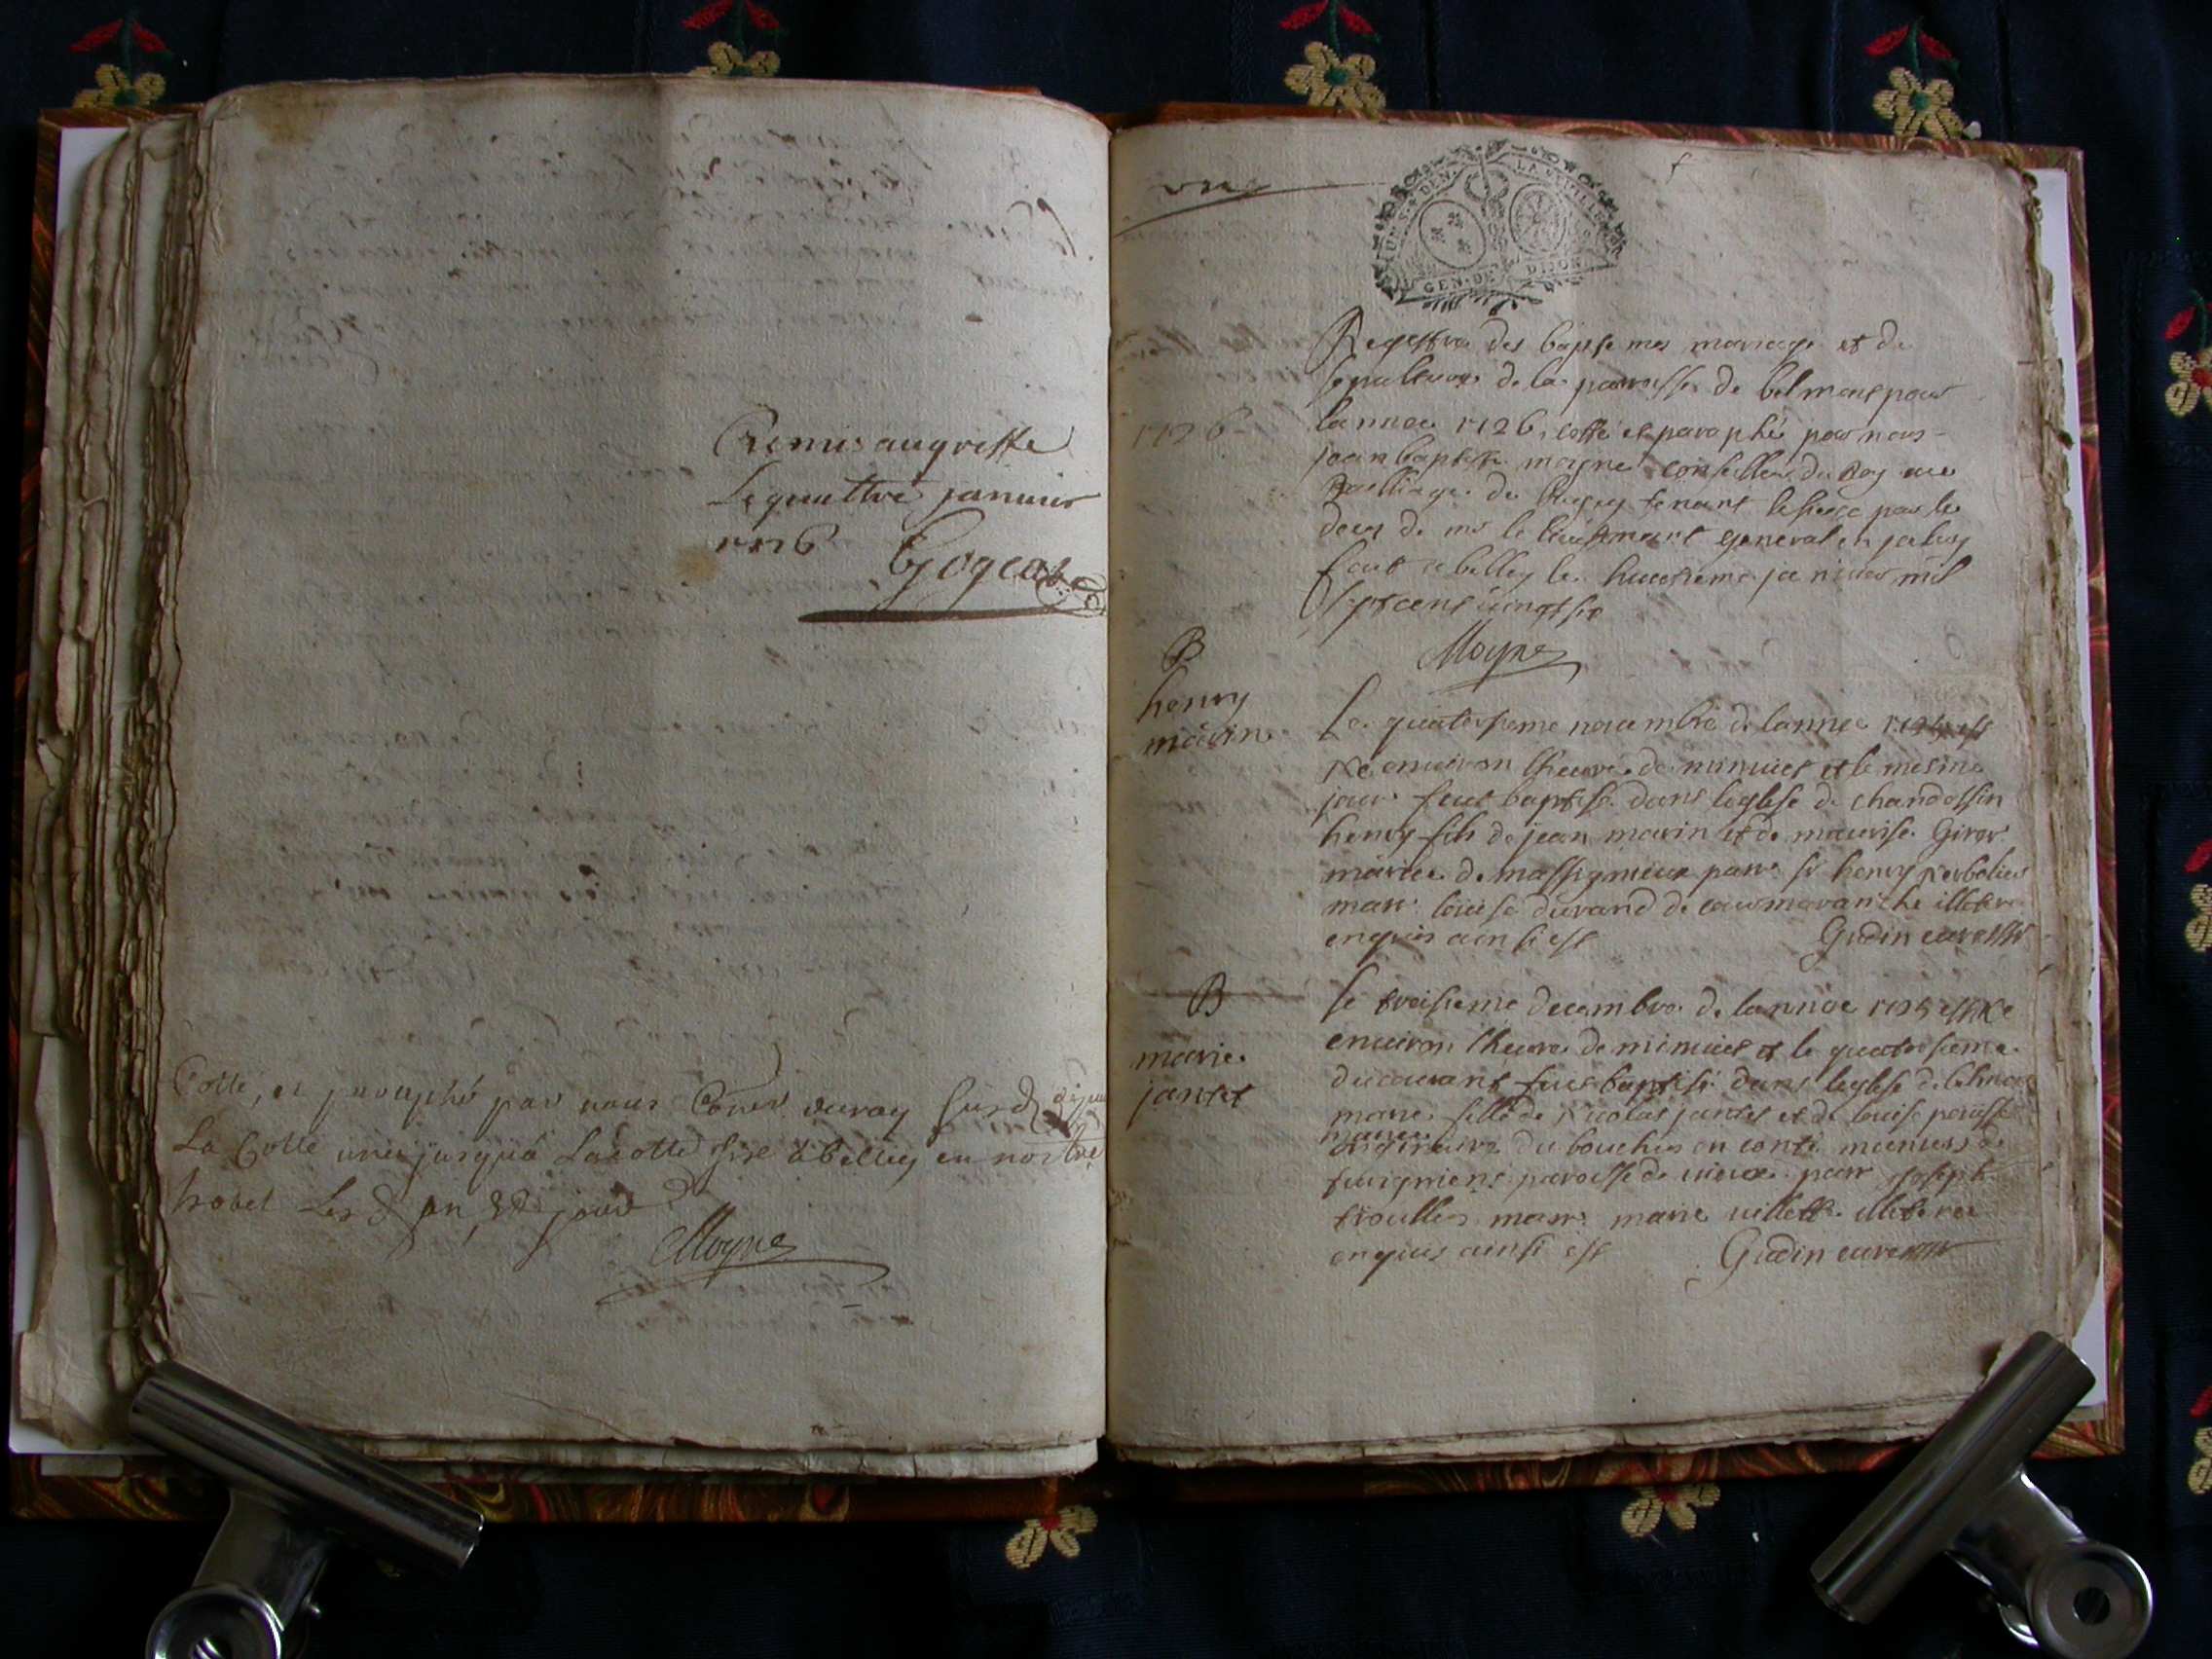 Remis au greffe
Le quattre januier
1726 Gogeat
Cotté, et paraphé par nous Coner du roy
La Cotte une jusqu'à La cotte size à belley en nostre
hotel Les an, et jour
Moyne
une
GEN. DE DIJON
Regestre des baptesmes mariage et de
sepulture de la parroisse de belmont pour
1726
lannee 1726, cotté et paraphé par nous
jean baptiste moyne conseiller du Roy au
Bailliage du bugey tenant le siege par le
deces de mr le lieutenant general en
fait a belley le huictieme januier mil
sept cent uingt six
Moyne
B
henry
marin
Le quatorsieme nouembre de lannee 1725 est
né enuiron lheure de minuict et le mesme
jour fut baptisé dans leglise de chandossin
henry fils de jean marin et de maurise Girer
mariee de massignieux parr sr henry
marr louise durand de illeteree
enquis ainsi est Gudin curé
B
marie
jantet
le troisieme decembre de lannee 1725 est né
enuiron lheure de minuict et le quatorsieme
du courant fut baptisé dans leglise de
marie fille de nicolas jantet et de louise
originaire du bouchus en conté
parroisse de uieux parr joseph
trouller marr marie uillette illeteree
enquis ainsi est Gudin curé